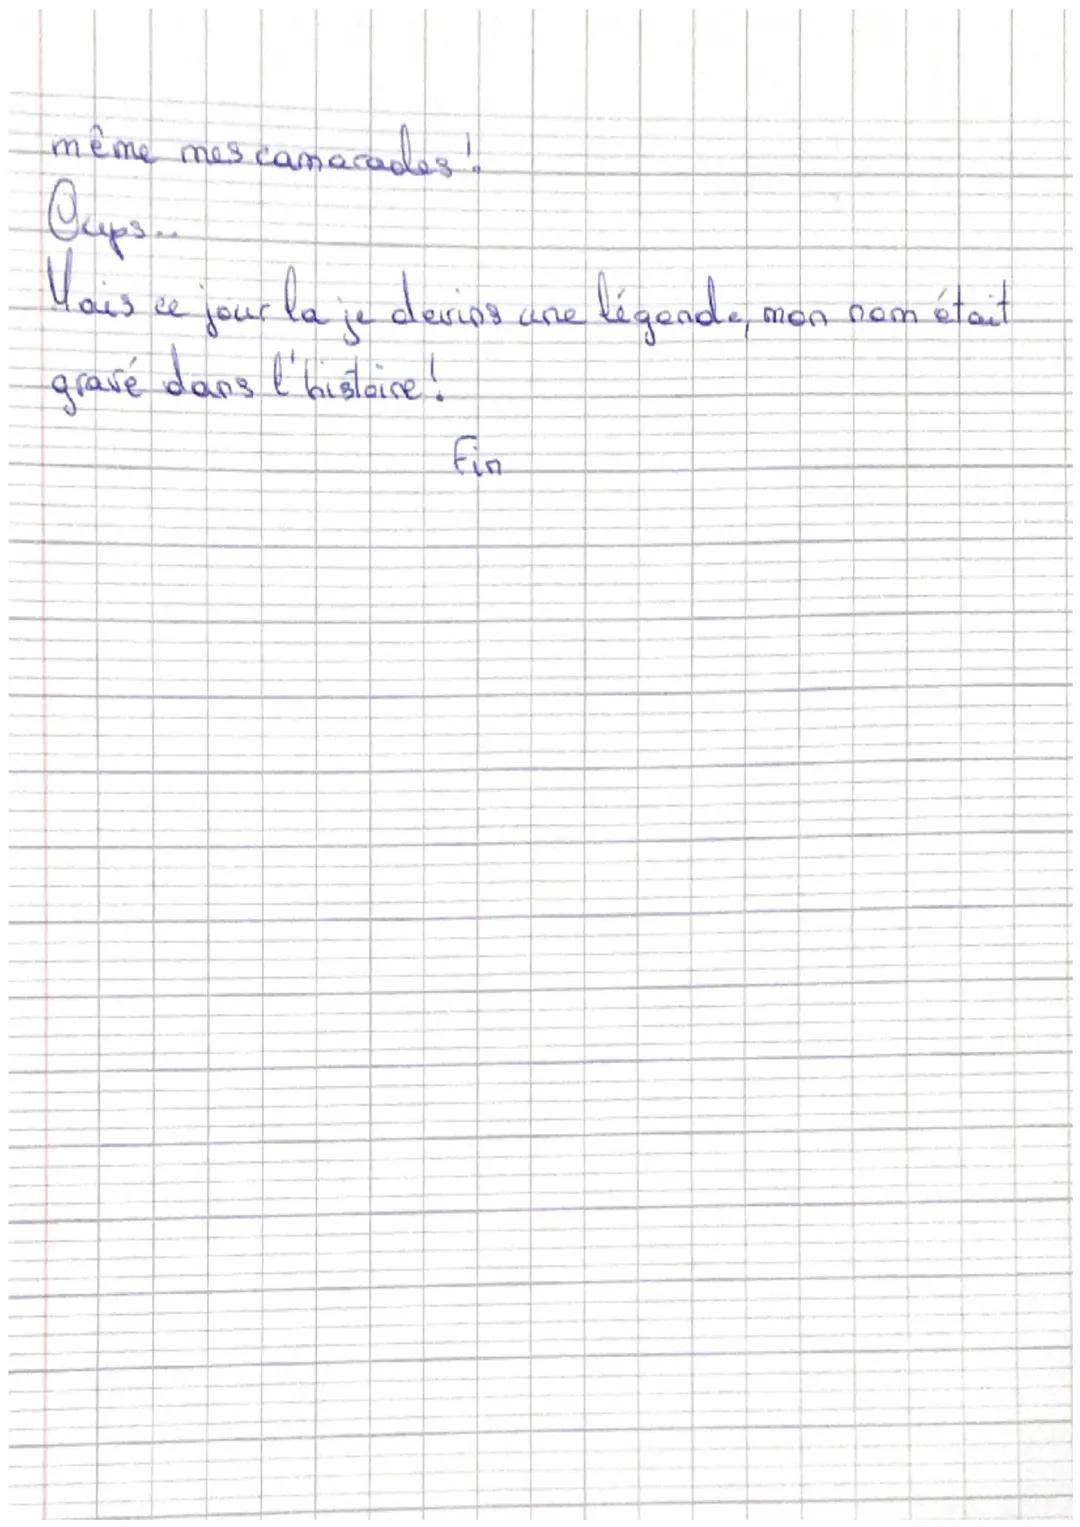 même mes camarades !
Oups...
Mais ce jour la je devins une légende, mon nom était
gravé dans l'histoire !
Fin